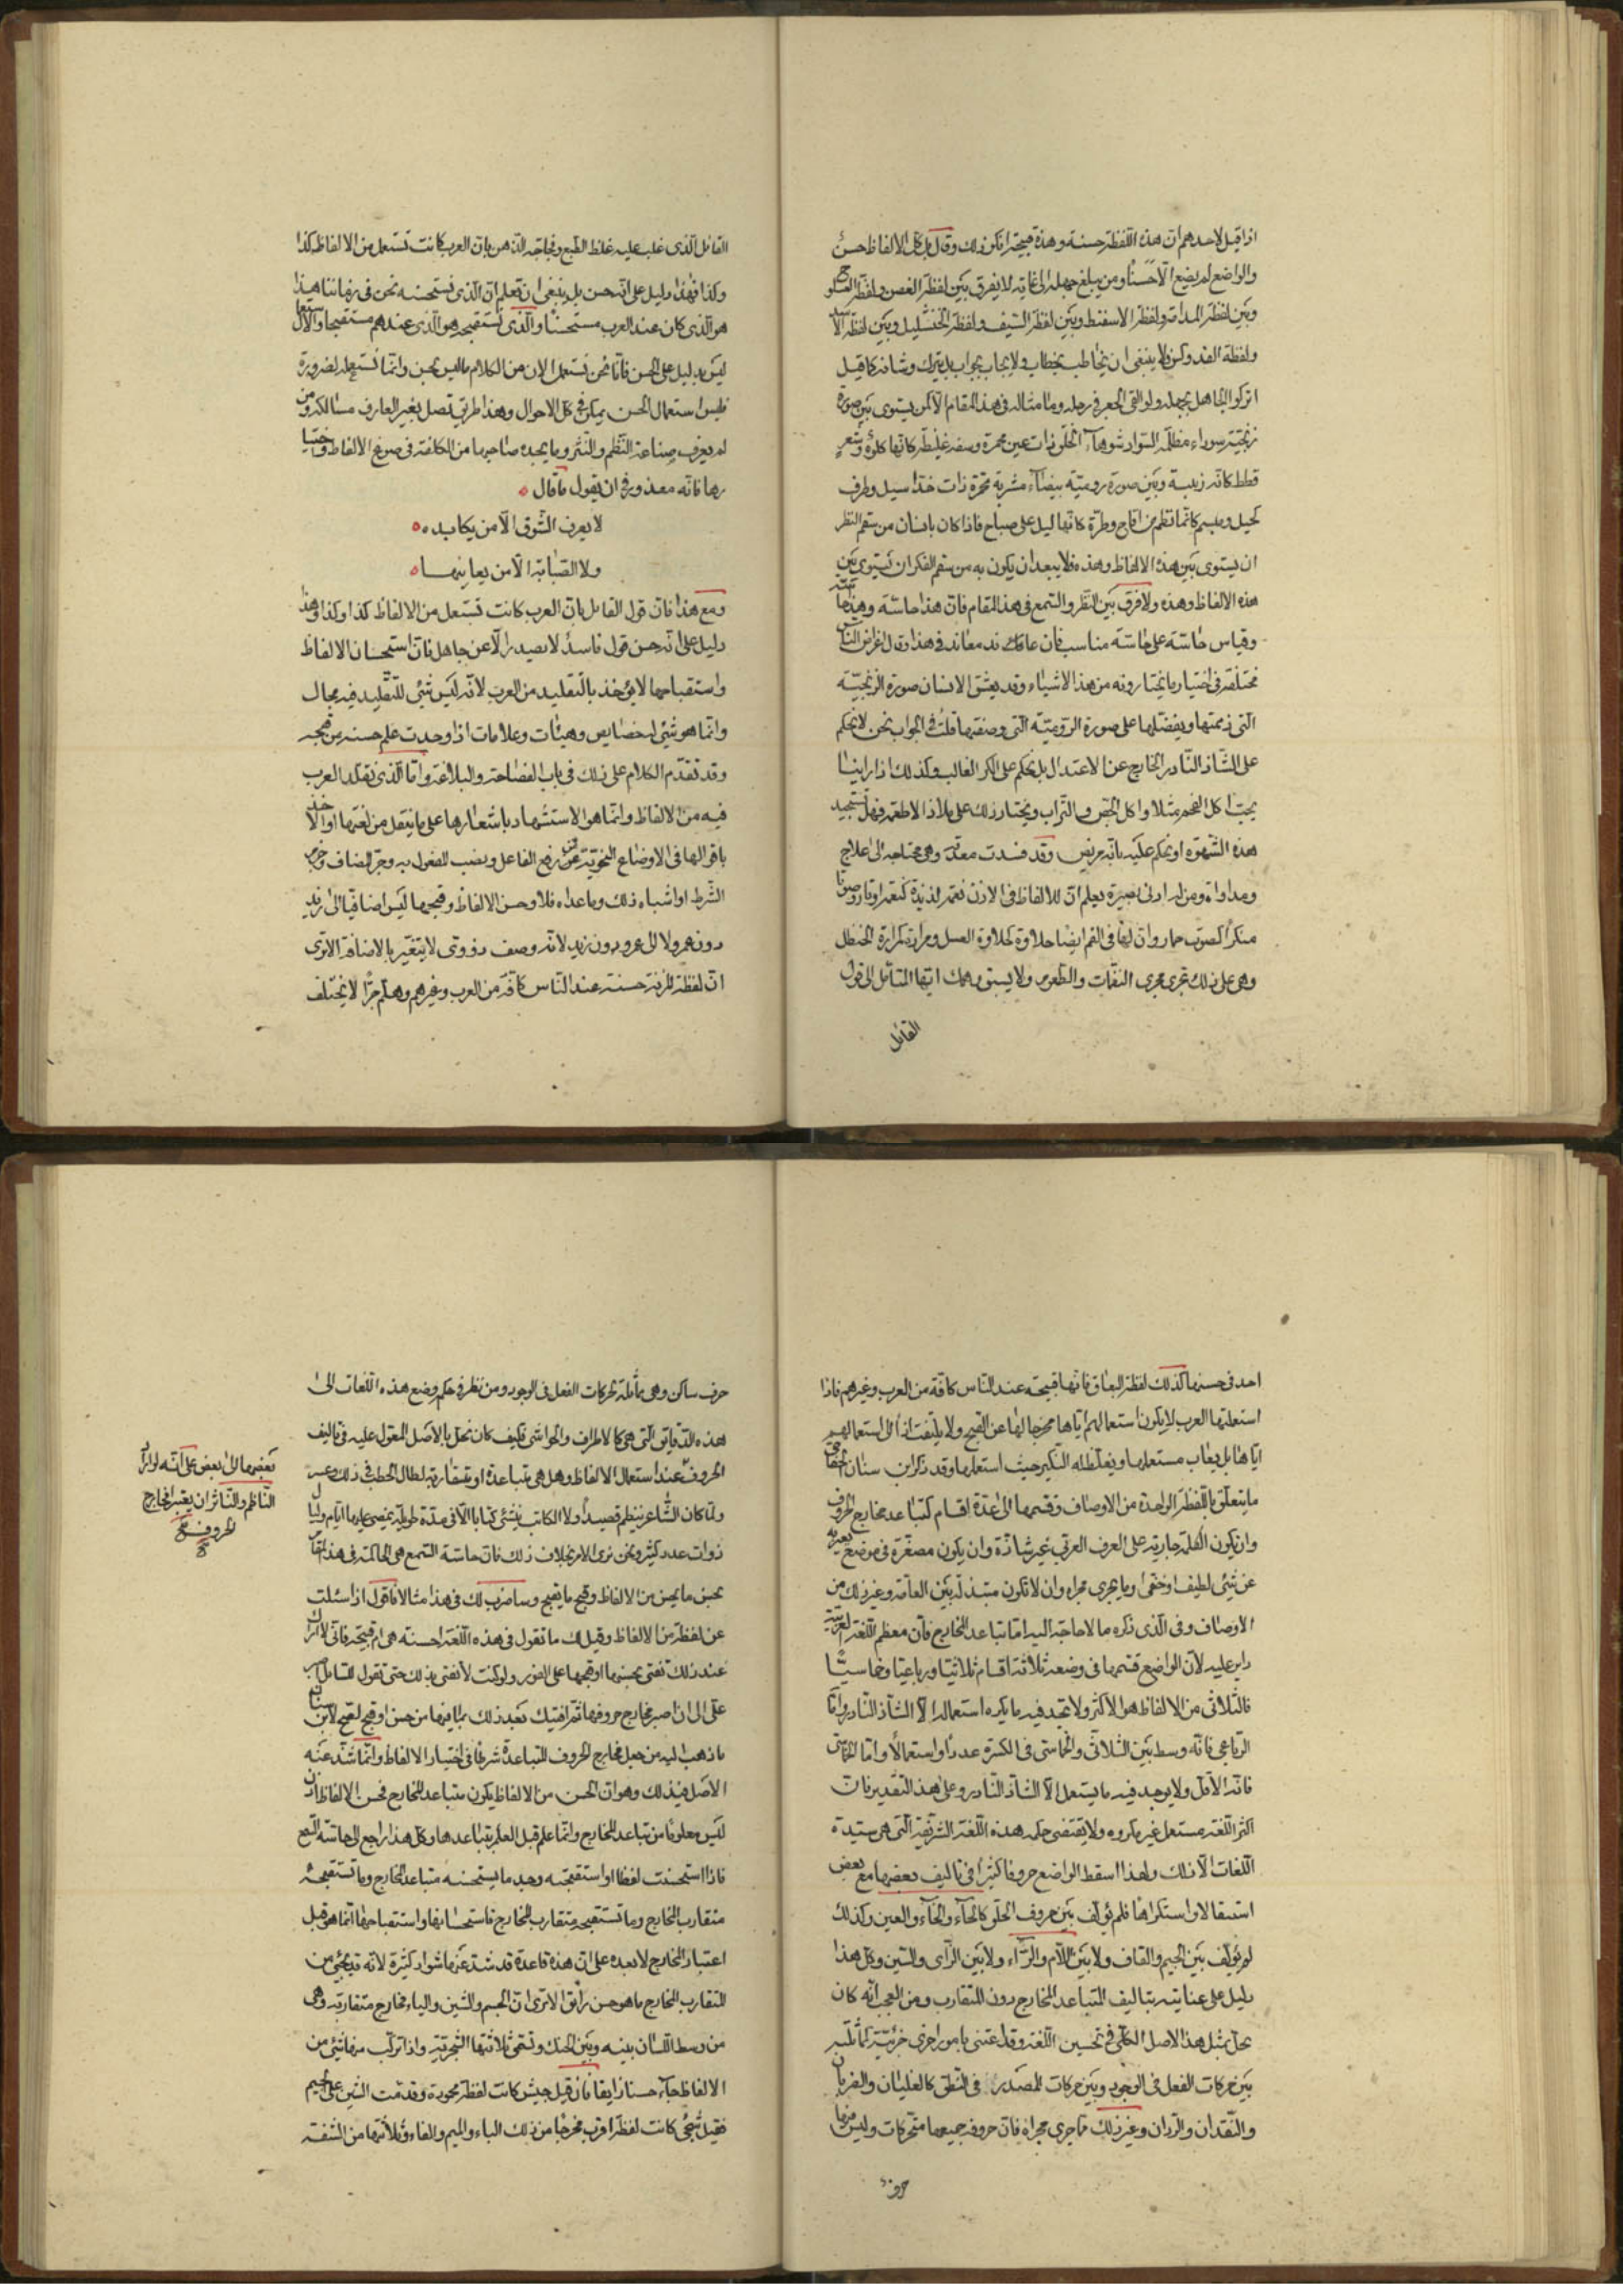 اذا قيل لاحدهم ان هذه اللفظة حسنة وهذه قبيحة انكر ذلك وقال بل كل الالفاظ حسن
والواضع لم يضع الا حسنا ومن يبلغ جهله الى غاية لا يفرق بين لفظة الغصن ولفظة العسلوج
وبين لفظة المدامة ولفظة الاسفنط وبين لفظة السيف ولفظة الخنشليل وبين لفظة الاسد
ولفظة الفدوكس فلا ينبغي ان يخاطب بخطاب ولا يجاب بجواب بل يترك وشانه كما قيل
اتركوا الجاهل بجهله ولو القى الجعر في رحله وما مثاله في هذا المقام الا كمن يسوي بين صورة
زنجية سوداء مظلمة السواد شوهاء الخلق ذات عين محمرة وشفة غليظة كانها كلوة وشعر
قطط كانه زبيبة وبين صورة رومية بيضاء مشربة بحمرة ذات خد اسيل وطرف
كحيل ومبسم كانما نظم من اقاح وطرة كانها ليل على صباح فاذا كان بانسان من سقم النظر
ان يسوي بين هذه الالفاظ وهذه فلا يبعد ان يكون به من سقم الفكر ان يسوي بين
هذه الالفاظ وهذه ولا فرق بين النظر والسمع في هذا المقام فان هذا حاسة وهذا حاسة
وقياس حاسة على حاسة مناسب فان عاند معاند في هذا وقال اغراض الناس
مختلفة في اختيار ما يختارونه من هذه الاشياء وقد يعشق الانسان صورة الزنجية
التي ذممتها ويفضلها على صورة الرومية التي وصفتها قلت في الجواب نحن لا نحكم
على الشاذ النادر الخارج عن الاعتدال بل نحكم على الكثير الغالب وكذلك اذا راينا
يحب اكل الفحم مثلا او اكل الجص والتراب ويختار ذلك على ملاذ الاطعمة فهل نستجيد
هذه الشهوة او نحكم عليه بانه مريض وقد فسدت معدته وهي محتاجة الى علاج
ومداواة ومن له ادنى بصيرة يعلم ان للالفاظ في الاذن نغمة لذيذة كنغمة اوتار وصوتا
منكرا كصوت حمار وان لها في الفم ايضا حلاوة كحلاوة العسل ومرارة كمرارة الحنظل
وهي على ذلك تجري مجرى النغمات والطعوم ولا يسبق وهمك ايها المتامل الى قول
القائل
القائل الذي غلب عليه غلظ الطبع وفجاجة الذهن بان العرب كانت تستعمل من الالفاظ كذا
وكذا فهذا دليل على انه حسن بل ينبغي ان تعلم ان الذي نستحسنه نحن في زماننا هذا
هو الذي كان عند العرب مستحسنا والذي نستقبحه هو الذي عندهم مستقبحا والاستعمال
ليس بدليل على الحسن فانا نحن نستعمل الان من الكلام ما ليس بحسن وانما نستعمله لضرورة
فليس استعمال الحسن بممكن في كل الاحوال وهذا طريق تضل بغير العارف مسالكه ومن
لم يعرف صناعة النظم والنثر وما يجده صاحبها من الكلفة في صوغ الالفاظ واختيا
رها فانه معذور في ان يقول ما قال
لا يعرف الشوق الا من يكابده
ولا الصبابة الا من يعانيها
ومع هذا فان قول القائل بان العرب كانت تستعمل من الالفاظ كذا وكذا وهذا
دليل على انه حسن قول فاسد لا يصدر الا عن جاهل فان استحسان الالفاظ
واستقباحها لا يؤخذ بالتقليد من العرب لانه ليس شئ للتقليد فيه مجال
وانما هو شئ له خصايص وهيئات وعلامات اذا وجدت علم حسنه من قبحه
وقد تقدم الكلام على ذلك في باب الفصاحة والبلاغة واما الذي نقلد العرب
فيه من الالفاظ وانما هو الاستشهاد باشعارها على ما ينقل من لغتها او الاخذ
باقوالها في الاوضاع النحوية في رفع الفاعل ونصب المفعول به وجر المضاف وجزم
الشرط او اشباه ذلك وما عداه فلا وحسن الالفاظ وقبحها ليس اضافيا الى زيد
دون عمرو ولا الى عمرو دون زيد لانه وصف ذووي لا يتغير بالاضافة الا ترى
ان لفظة المزنة حسنة عند الناس كافة من العرب وغيرهم وهلم جرا لا يختلف
احد في حسنها كذلك لفظة البعاق فانها قبيحة عند الناس كافة من العرب وغيرهم فاذا
استعملتها العرب لا يكون استعمالهم اياها مخرجا لها عن القبح ولا يلتفت اذا الى استعمالهم
اياها بل يعاب مستعملها ويغلظ له النكير حيث استعملها وقد ذكر ابن سنان الخفاجي
ما يتعلق باللفظة الواحدة من الاوصاف وقسمها الى عدة اقسام كتباعد مخارج الحروف
وان تكون الكلمة جارية على العرف العربي غير شاذة وان يكون مصغرة في موضع يعبر به
عن شئ لطيف او خفي وما يجري مجراه وان لا تكون مبتذلة بين العامة وغير ذلك من
الاوصاف وفي الذي ذكره ما لا حاجة اليه اما تباعد المخارج فان معظم اللغة العربية
داير عليه لان الواضع قسمها في وضعه ثلاثة اقسام ثلاثيا ورباعيا وخماسيا
فالثلاثي من الالفاظ هو الاكثر ولا يوجد فيه ما يكره استعماله الا الشاذ النادر واما
الرباعي فانه وسط بين الثلاثي والخماسي في الكثرة عددا واستعمالا واما الخماسي
فانه الاقل ولا يوجد فيه ما يستعمل الا الشاذ النادر وعلى هذا التقدير فان
اكثر اللغة مستعمل غير مكروه ولا يقتضي حكمه هذه اللغة الشريفة التي هي سيدة
اللغات الا ذلك ولهذا اسقط الواضع حروفا كثيرا في تاليف بعضها مع بعض
استثقالا واستكراها فلم يؤلف بين حروف الحلق كالحاء والخاء والعين وكذلك
لم يؤلف بين الجيم والقاف ولا بين اللام والراء ولا بين الزاي والسين وكل هذا
دليل على عنايته بتاليف المتباعد المخارج دون المتقارب ومن العجب انه كان
يخل بمثل هذا الاصل الكلي في تحسين اللغة وقد اعتنى بامور اخرى جزئية كمماثلته
بين حركات الفعل في الوجود وبين حركات المصدر في النطق كالغليان والضربان
والنقدان والنزوان وغير ذلك مما جرى مجراه فان حروفه جميعها متحركات وليس فيها
حرف
حرف ساكن وهي مماثلة لحركات الفعل في الوجود ومن نظر في حكم وضع هذه اللغات الى
هذه الدقايق التي هي كالاطراف والحواشي فكيف كان يخل بالاصل المعول عليه في تاليف
الحروف عند استعمال الالفاظ وهل هي متباعدة او متقاربة لطال الخطب في ذلك وعسر
ولما كان الشاعر ينظم قصيدا ولا الكاتب ينشئ كتابا الا في مدة طويلة تمضي عليها ايام وليال
ذوات عدد كثير ونحن نرى الامر بخلاف ذلك فان حاسة السمع هي الحاكمة في هذا المقام
بحسن ما يحسن من الالفاظ وقبح ما يقبح وساضرب لك في هذا مثالا فاقول اذا سئلت
عن لفظة من الالفاظ وقيل لك ما تقول في هذه اللفظة احسنة هي ام قبيحة فاني لا اراك
عند ذلك تفتي بحسنها او قبحها على الفور ولو كنت لا تفتي بذلك حتى تقول للسائل اصبر
علي الى ان اعتبر مخارج حروفها ثم افتيك بعد ذلك بما فيها من حسن او قبح لصح لابن سنان
ما ذهب اليه من جعل مخارج الحروف المتباعدة شرطا في اختيار الالفاظ وانما شذ عنه
الاصل في ذلك وهو ان الحسن من الالفاظ يكون متباعد المخارج فحسن الالفاظ اذن
ليس معلوما من تباعد المخارج وانما علم قبل العلم بتباعدها وكل هذا راجع الى حاسة السمع
فاذا استحسنت لفظا او استقبحته وجد ما تستحسنه متباعد المخارج وما تستقبحه
متقارب المخارج وما تستقبحه متقارب المخارج فاستحسانها واستقباحها انما هو قبل
اعتبار المخارج لا بعده على ان هذه قاعدة قد شذ عنها شواذ كثيرة لانه قد يجئ من
المتقارب المخارج ما هو حسن رائق الا ترى ان الجيم والشين والياء مخارج متقاربة وهي
من وسط اللسان بينه وبين الحنك وتسمى ثلاثتها الشجرية واذا تركب منها شئ من
الالفاظ جاء حسنا رايقا فان قيل جيش كانت لفظة محمودة وقدمت الشين على الجيم
فقيل شجي كانت لفظة اقرب مخرجا من ذلك الباء والميم والفاء وثلاثتها من الشفة
بعضها الى بعض على انه لو اراد
الناظم والناثر ان يعتبر مخارج
الحروف صح